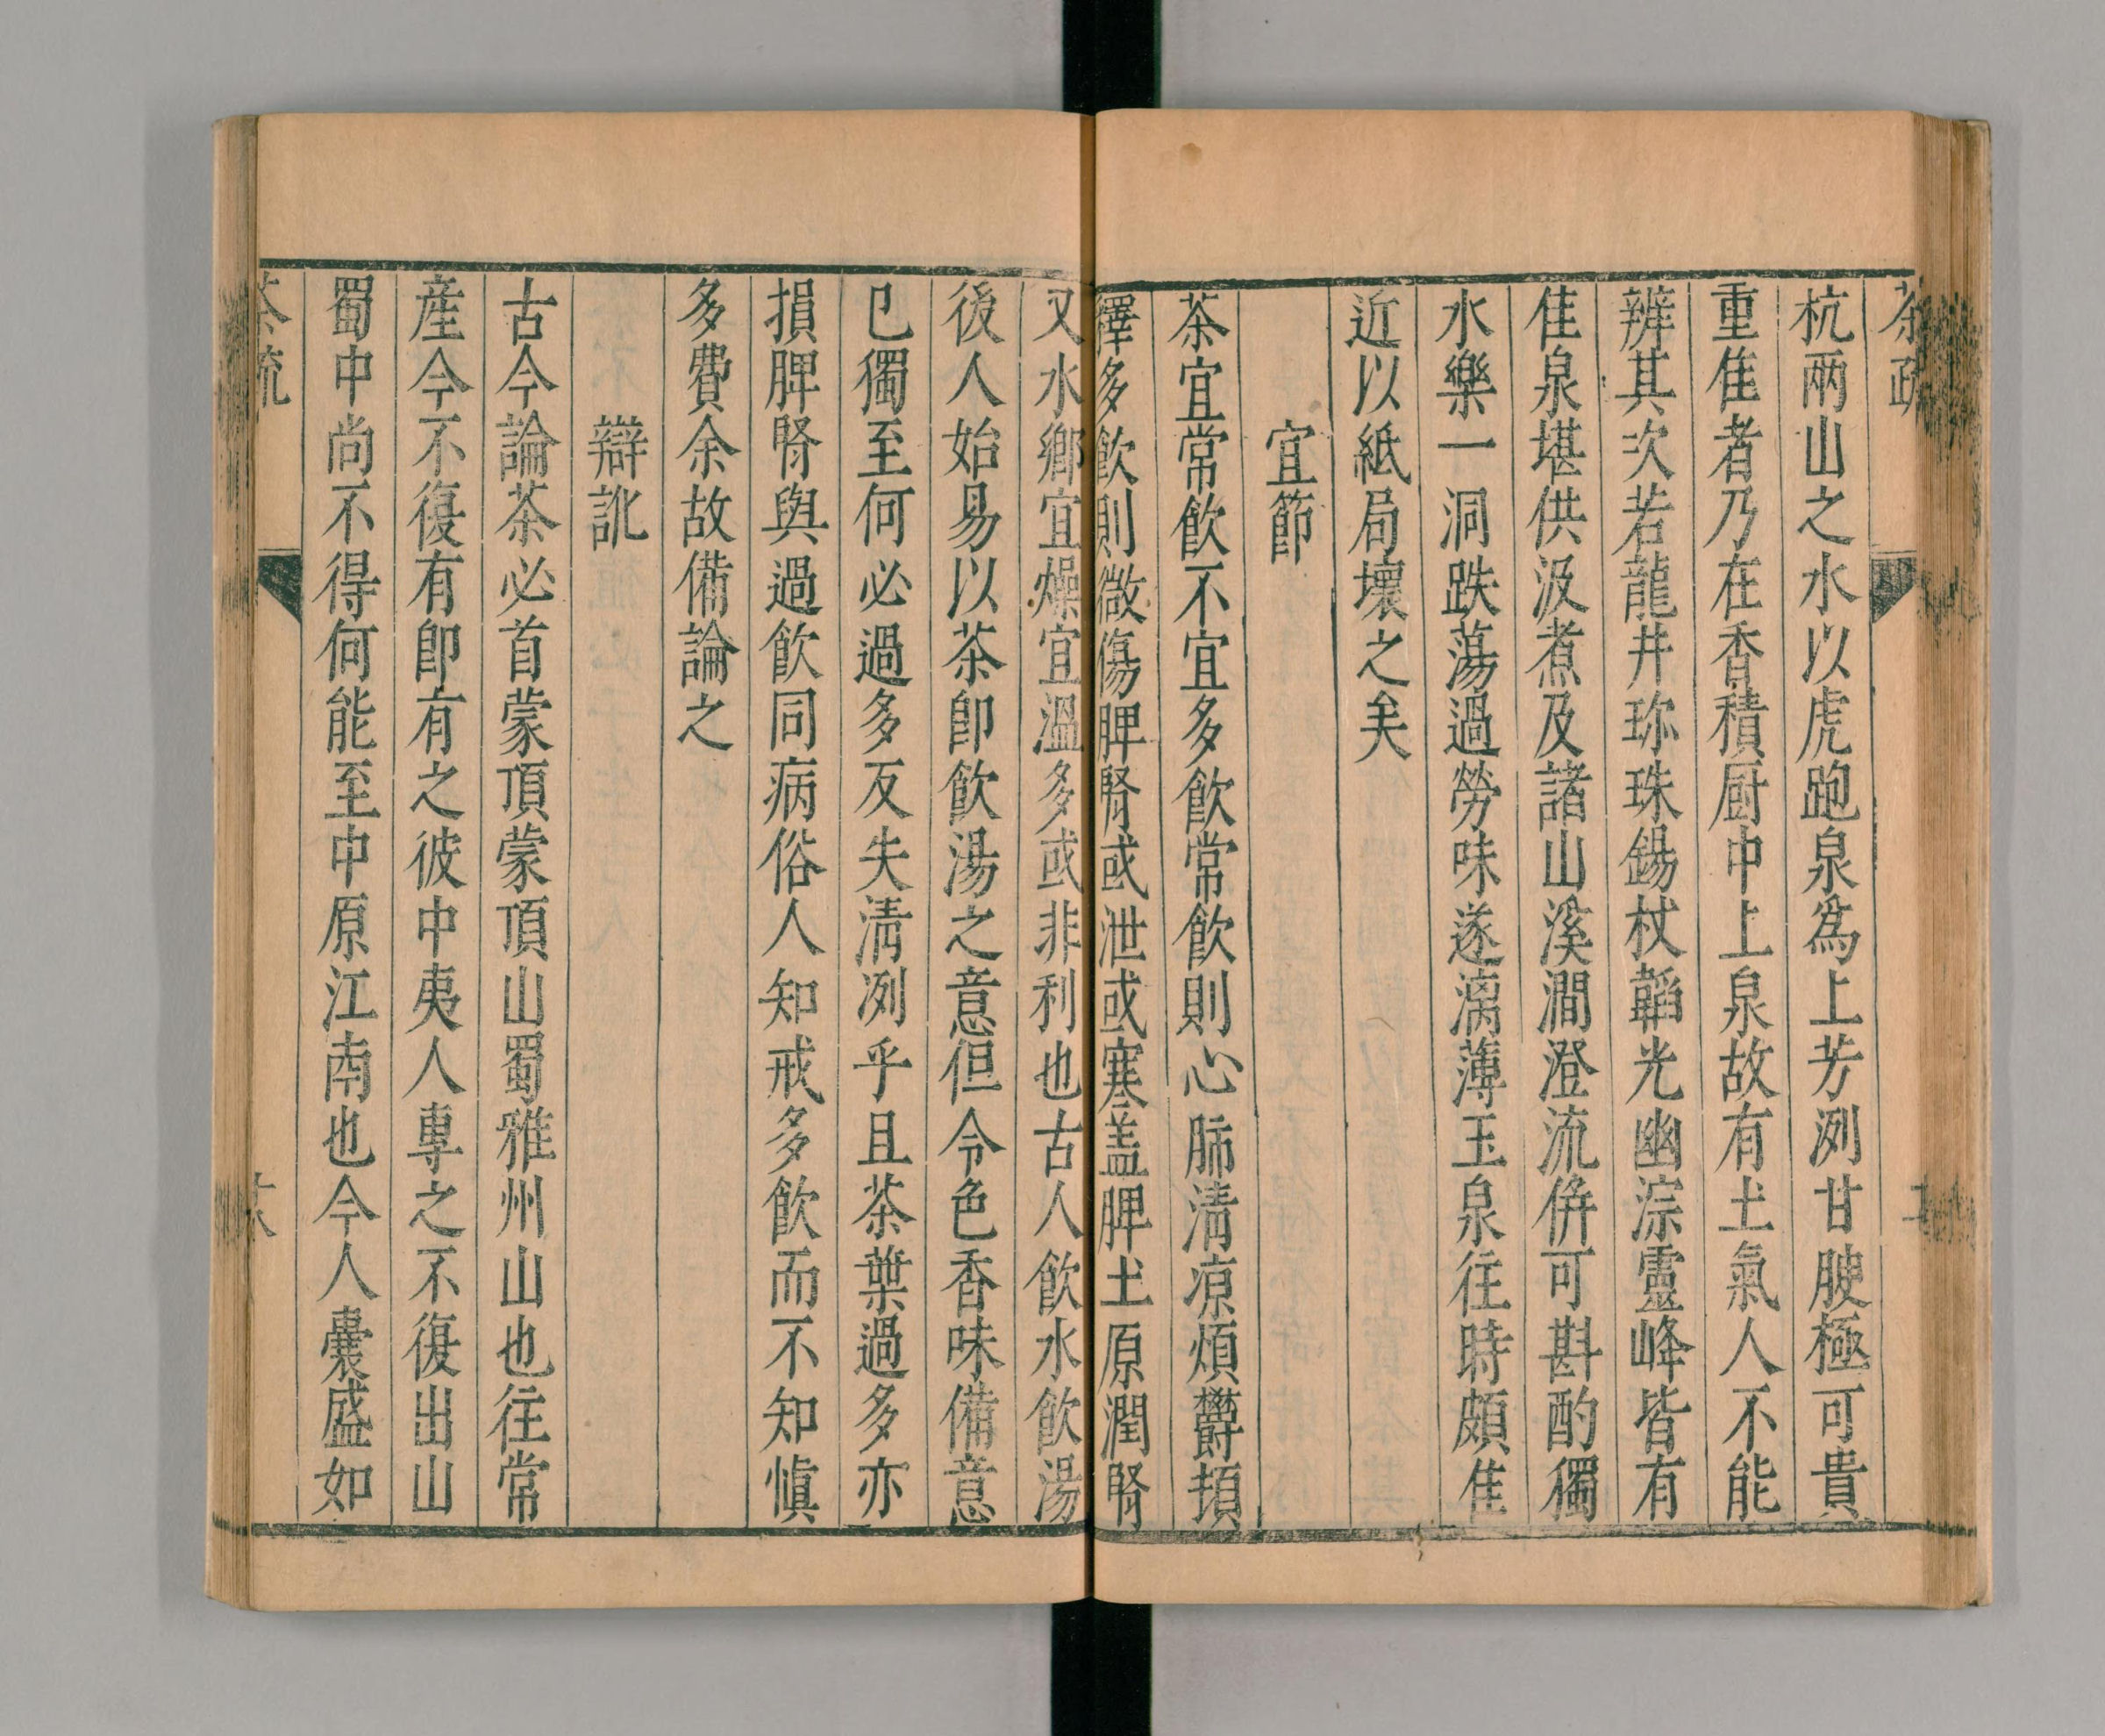 茶疏
杭兩山之水以虎跑泉爲上芳洌甘腴極可貴
重隹者乃在香積厨中上泉故有土氣人不能
辨其次若龍井珎珠錫杖韜光幽淙靈峰皆有
佳泉堪供汲煮及諸山溪澗澄流併可斟酌獨
水樂一洞跌蕩過勞味遂漓薄玉泉往時頗隹
近以紙局壞之矣
宜節
茶宜常飲不宜多飲常飲則心肺淸凉煩欝頓
釋多飲則微傷脾腎或泄或寒盖脾土原潤腎
又水鄉宜燥宜溫多或非利也古人飲水飲湯
後人始易以茶卽飲湯之意但令色香味備意
已獨至何必過多反失淸洌乎且茶葉過多亦
損脾腎與過飲同病俗人知戒多飲而不知愼
多費余故備論之
辯訛
古今論茶必首蒙頂蒙頂山蜀雅州山也往常
産今不復有卽有之彼中夷人專之不復出山
蜀中尚不得何能至中原江南也今人囊盛如
茶疏